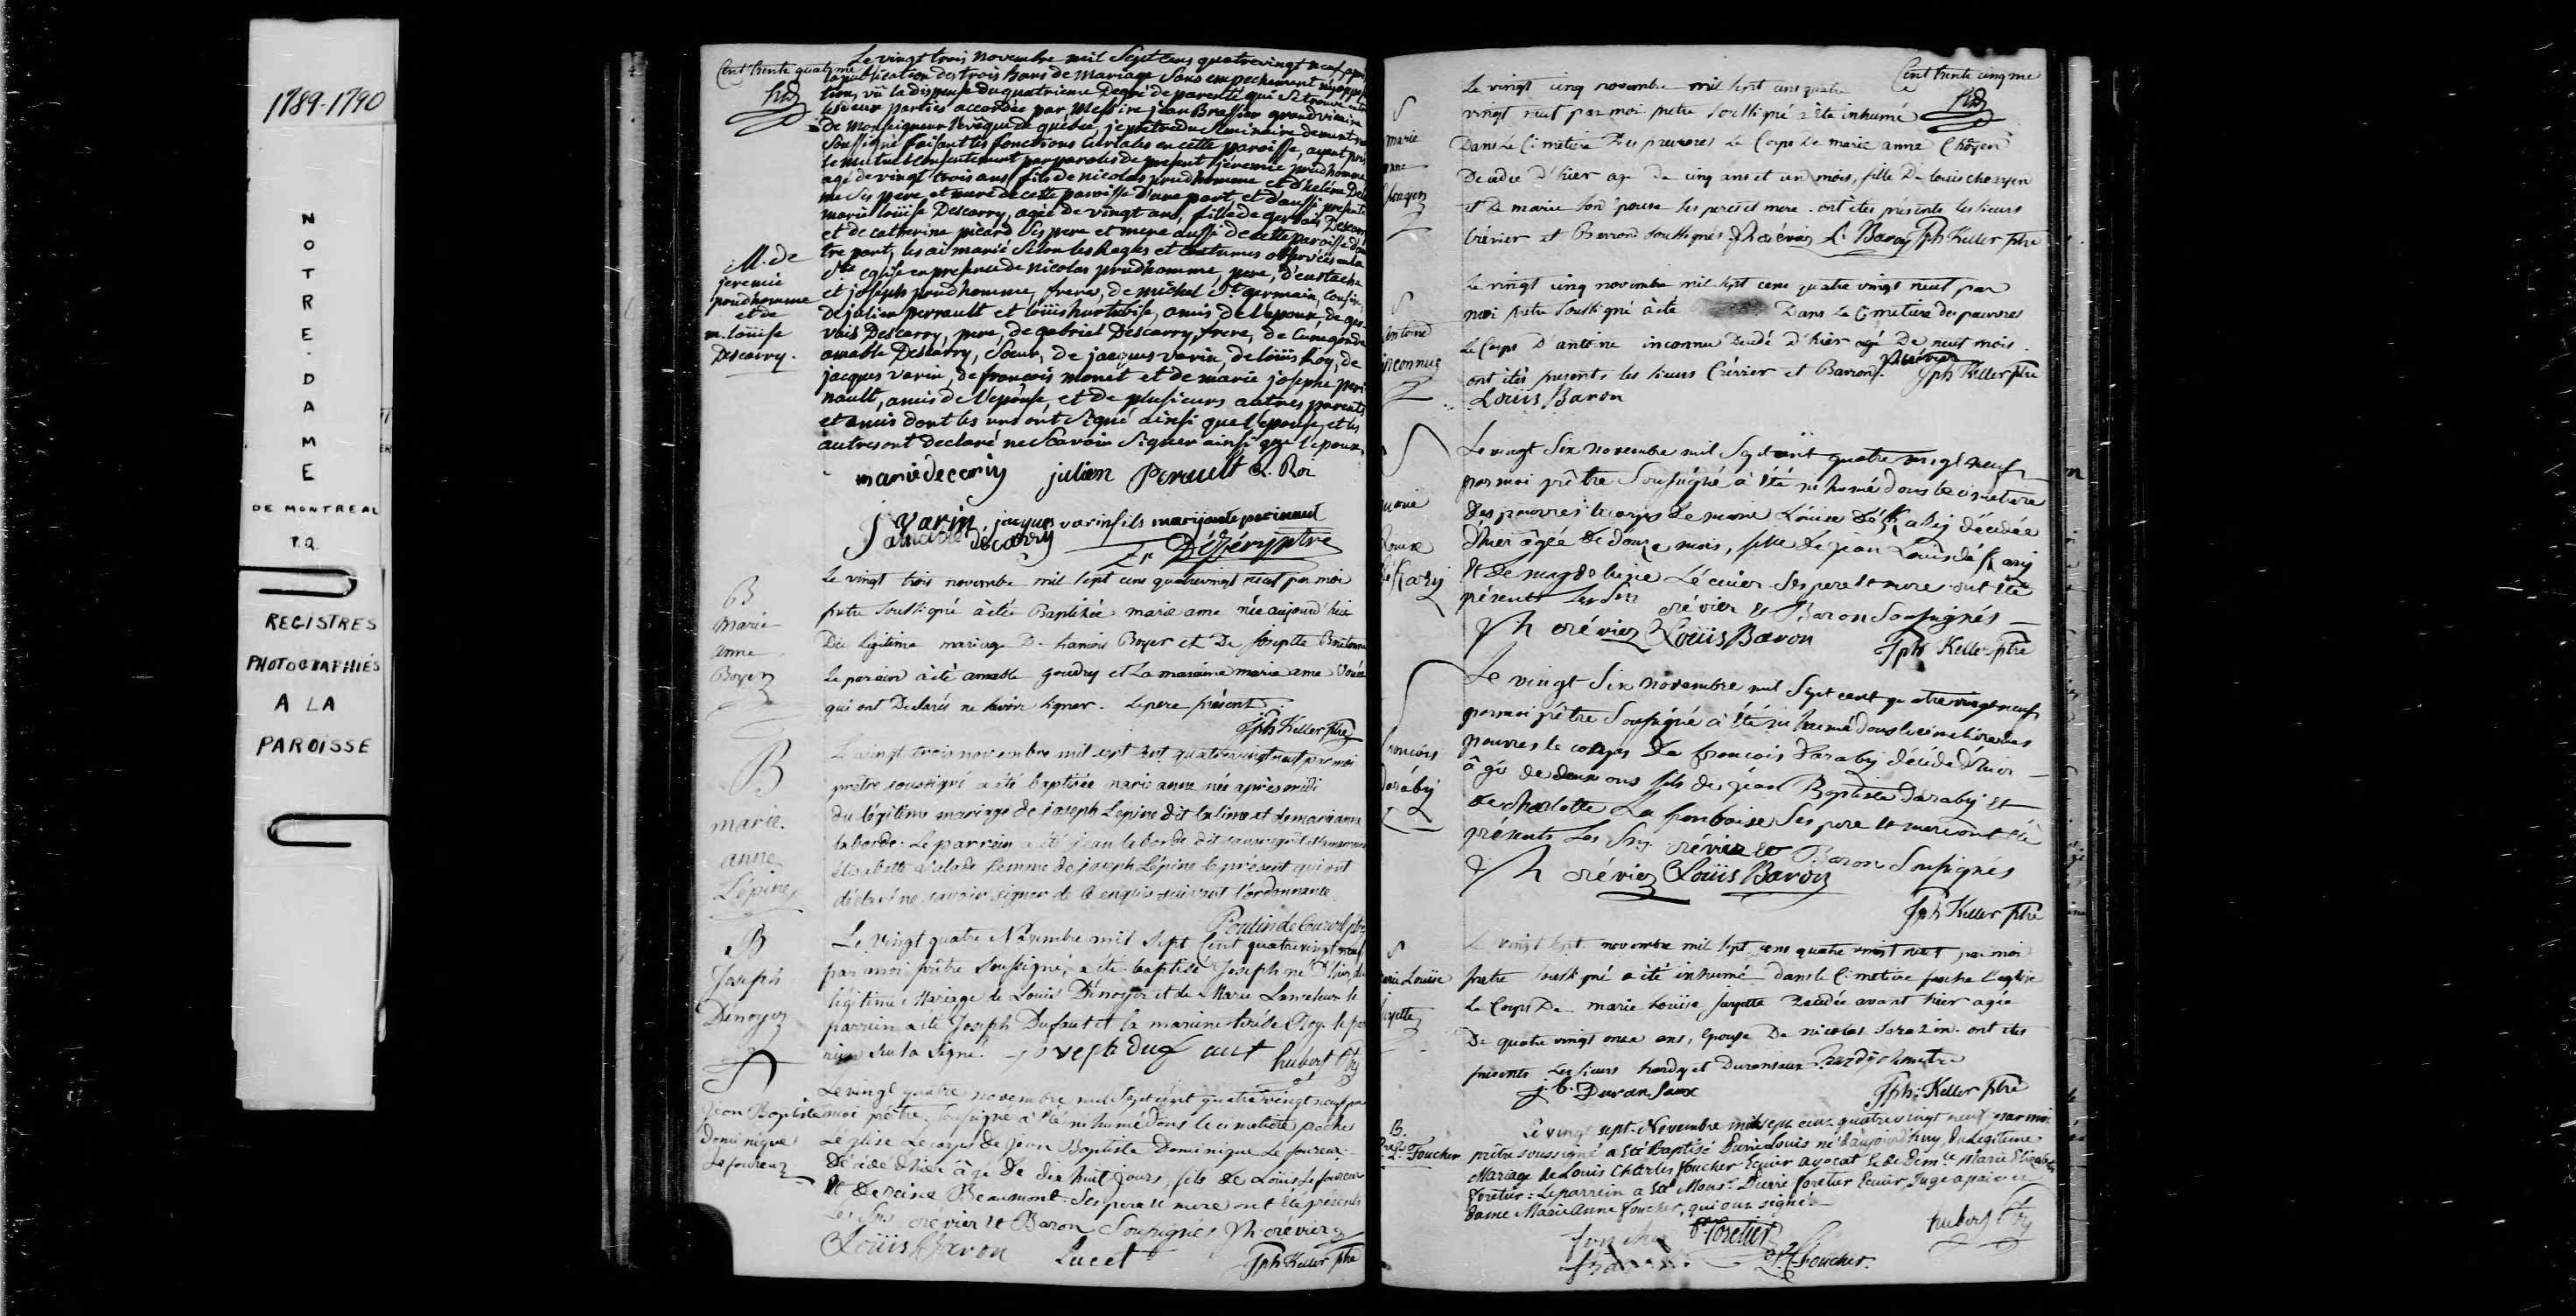 1789-1790
NOTRE-DAME
DE MONTREAL
P.Q.
REGISTRES
PHOTOGRAPHIÉS
A LA
PAROISSE
Cent trente quatrme
Le vingt trois novembre mil Sept cens quatrevingt neuf apres
la publication des trois bans de Mariage Sans empechement ny opposi
tion, vû la dispense du quatrieme Degré de parenté qui Se trouve entre
les deux parties accordée par Messire jean Brassier grand vicaire
de Monseigneur l'evêque de quebec, je pretre du Seminaire de montreal
Soussigné faisant les fonctions curiales en cette paroisse, ayant pris
le mutuel consentement par paroles de present de jeremie prudhomme
agé de vingt trois ans fils de nicolas prudhomme et d'helene
Ses pere et mere de cette paroisse d'une part, et d'aussi presente
marie loüise Descarry, agée de vingt ans, fille de gervais Descarry
et de catherine picard Ses pere et mere aussi de cette paroisse d'au
tre part, les ai marié Selon les Regles et coutumes observées en la
Ste eglise en presence de nicolas prudhomme, pere, d'eustache
et joseph prudhomme, freres, de michel St germain, cousin,
De julien perrault et loüis hurtubise, amis de l'epoux, de ger-
vais Descarry, pere, de gabriel Descarry, frere, de Cunegonde
amable Descarry, Soeur, de jacques varin, de loüis Roy, de
jacques varin, de françois monet et de marie josephe peri
nault, amis de l'epouse et de plusieurs autres parents
et amis dont les uns ont Signé ainsi que l'epouse, et les
autres ont declaré ne Scavoir Signer ainsi que l'epoux.
M. de
jeremie
prudhomme
et de
m. loüise
Descarry.
marie decaris julien Perault L. Roi
J Varin, jacques varin fils marijosete perinaut
amable decarry
Dézéry ptre
B
Marie
Anne
Boyer
Le vingt trois novembre mil Sept cens quatrevingt neuf par moi
pretre Soussigné à été Baptisée marie anne née aujourd'hui
Du legitime mariage De francois Boyer et De Josephte
Le parain à été amable goudry et La maraine marie anne
qui ont Declarés ne Savoir signer. Le pere présent
Jph Keller ptre
B
marie.
anne
Lépine
Le vingt trois novembre mil sept cent quatrevingt neuf par moi
prêtre soussigné a été baptisée marie anne née après midi
du légitime mariage de joseph Lepine dit lalime et de marie anne
laborde. Le parrein a été jean laborde dit
élisabette femme de joseph Lépine le présent qui ont
déclaré ne savoir signer de ce enquis suivant l'ordonnance.
Poulin de Courval ptre
B
Joseph
Dénoyer
Le Vingt quatre Novembre mil Sept Cent quatrevingt neuf
par moi prêtre Soussigné, a été baptisé Joseph né d'hier du
légitime Mariage de Louis Dénoyer et de Marie le
parrein a été Joseph Dufaut et la marine le par
rein Seul a Signé. joseph dufaut hubert
S
Jean Baptiste
Dominique
Lefoureur
Le vingt quatre novembre mil Sept cent quatre vingt neuf par
moi prêtre Soussigné à été inhumé Dans le cimetiere proche
L'église Le corps de Jean Baptiste Dominique Le foureur
Décédé d'hier âgé De dix huit jours, fils de Louis Le foureur
et De Beaumont Ses pere et mere ont été présents
Les Srs crévier et Baron Soussignés Jh crévier
Loüis Baron Lucet Jph Keller ptre
Cent trente cinq me
S
marie
anne
Choyen
Le vingt cinq novembre mil Sept cens quatre
vingt neuf par moi pretre Soussigné à été inhumé
Dans Le Cimetiere Des pauvres Le Corps De marie anne Choyen
Decedee d'hier age De cinq ans et un mois, fille De louis choyen
et De marie Son épouse Ses pere et mere. ont étés présents les Sieurs
Crévier et Barrond Soussignés. Jh crévier L. Baron Jph Keller ptre
S
Antoine
inconnue
Le vingt cinq novembre mil Sept cens quatre vingt neuf par
moi pretre Soussigné à été Dans Le Cimetiere des pauvres
Le Corps D'antoine inconnu Decedé d'hier agé De neuf mois.
ont étés presents les Sieurs Crévier et Barrond. Jh crévier
Jph Keller ptre
Loüis Baron
S
Marie
Louise
Le vingt Six novembre mil Sept cent quatre vingt neuf
par moi prêtre Soussigné à été inhumé dans le cimetiere
des pauvres le corps de marie Loüise décédée
d'hier âgée de douze mois, fille de Jean Louis
et De magdeleine Lécuier Ses pere et mere ont été
présents Les Srs crévier et Baron Soussignés
Jh crévier Loüis Baron Jph Keller ptre
S
François
Darabij
Le vingt Six novembre mil Sept cent quatre vingt neuf
par moi prêtre Soussigné à été inhumé dans le cimetiere des
pauvres le corps De françois Darabij décédé d'hier
âgé de deux ans fils de Jean Baptiste Darabij et
de charlotte La framboise Ses pere et mere ont été
présents Les Srs crévier et Baron Soussignés
Jh crévier Loüis Baron
Jph Keller ptre
S
Marie Louise
Le vingt Sept novembre mil Sept cens quatre vingt neuf par moi
pretre Soussigné a été inhumé dans le Cimetiere proche l'eglise
Le Corps De marie Loüise Decedée avant hier agée
De quatre vingt onze ans, Epouse De nicolas Sarazin. ont étés
presents Les Sieurs hardy et Duransaux
J. b. Duransaux Jph: Keller ptre
B.
Foucher
Le vingt sept Novembre mil sept cens quatre vingt neuf par moi
prêtre soussigné a été Baptisé Pierre Louis né d'aujourd'huy, du legitime
Mariage de Louis Charles Foucher Ecuier avocat et de Demlle Marie Elizabeth
Foretier: Le parrein a été Monsr. Pierre Foretier Ecuier, Juge a paix et
Dame Marie Anne Foucher, qui ont signé
Pre Foretier hubert
Foucher.